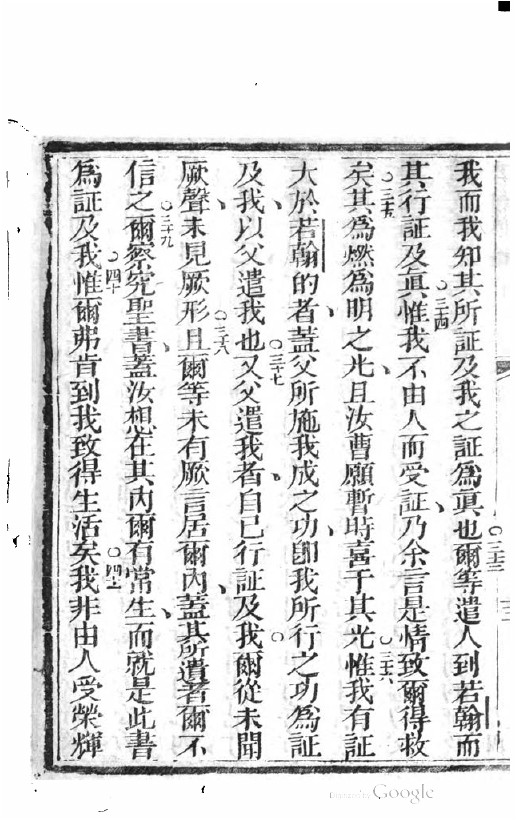 我而我知其所証及我之証為眞也○三十三爾等遣人到若翰而
其行証及眞○三十四惟我不由人而受証、乃余言是情致爾得救
矣○三十五其為燃為明之光、且汝曹願暫時喜于其光○三十六惟我有証
大於若翰的者、蓋父所施我成之功、卽我所行之功為証
及我、以父遣我也○三十七又父遣我者、自己行証及我○爾從未聞
厥聲、未見厥形○三十八且爾等未有厥言居爾內、蓋其所遣者爾不
信之○三十九爾察究聖書、蓋汝想在其內爾有常生、而就是此書
為証及我○四十惟爾弗肯到我致得生活矣○四十一我非由人受榮輝
Digitized by Google